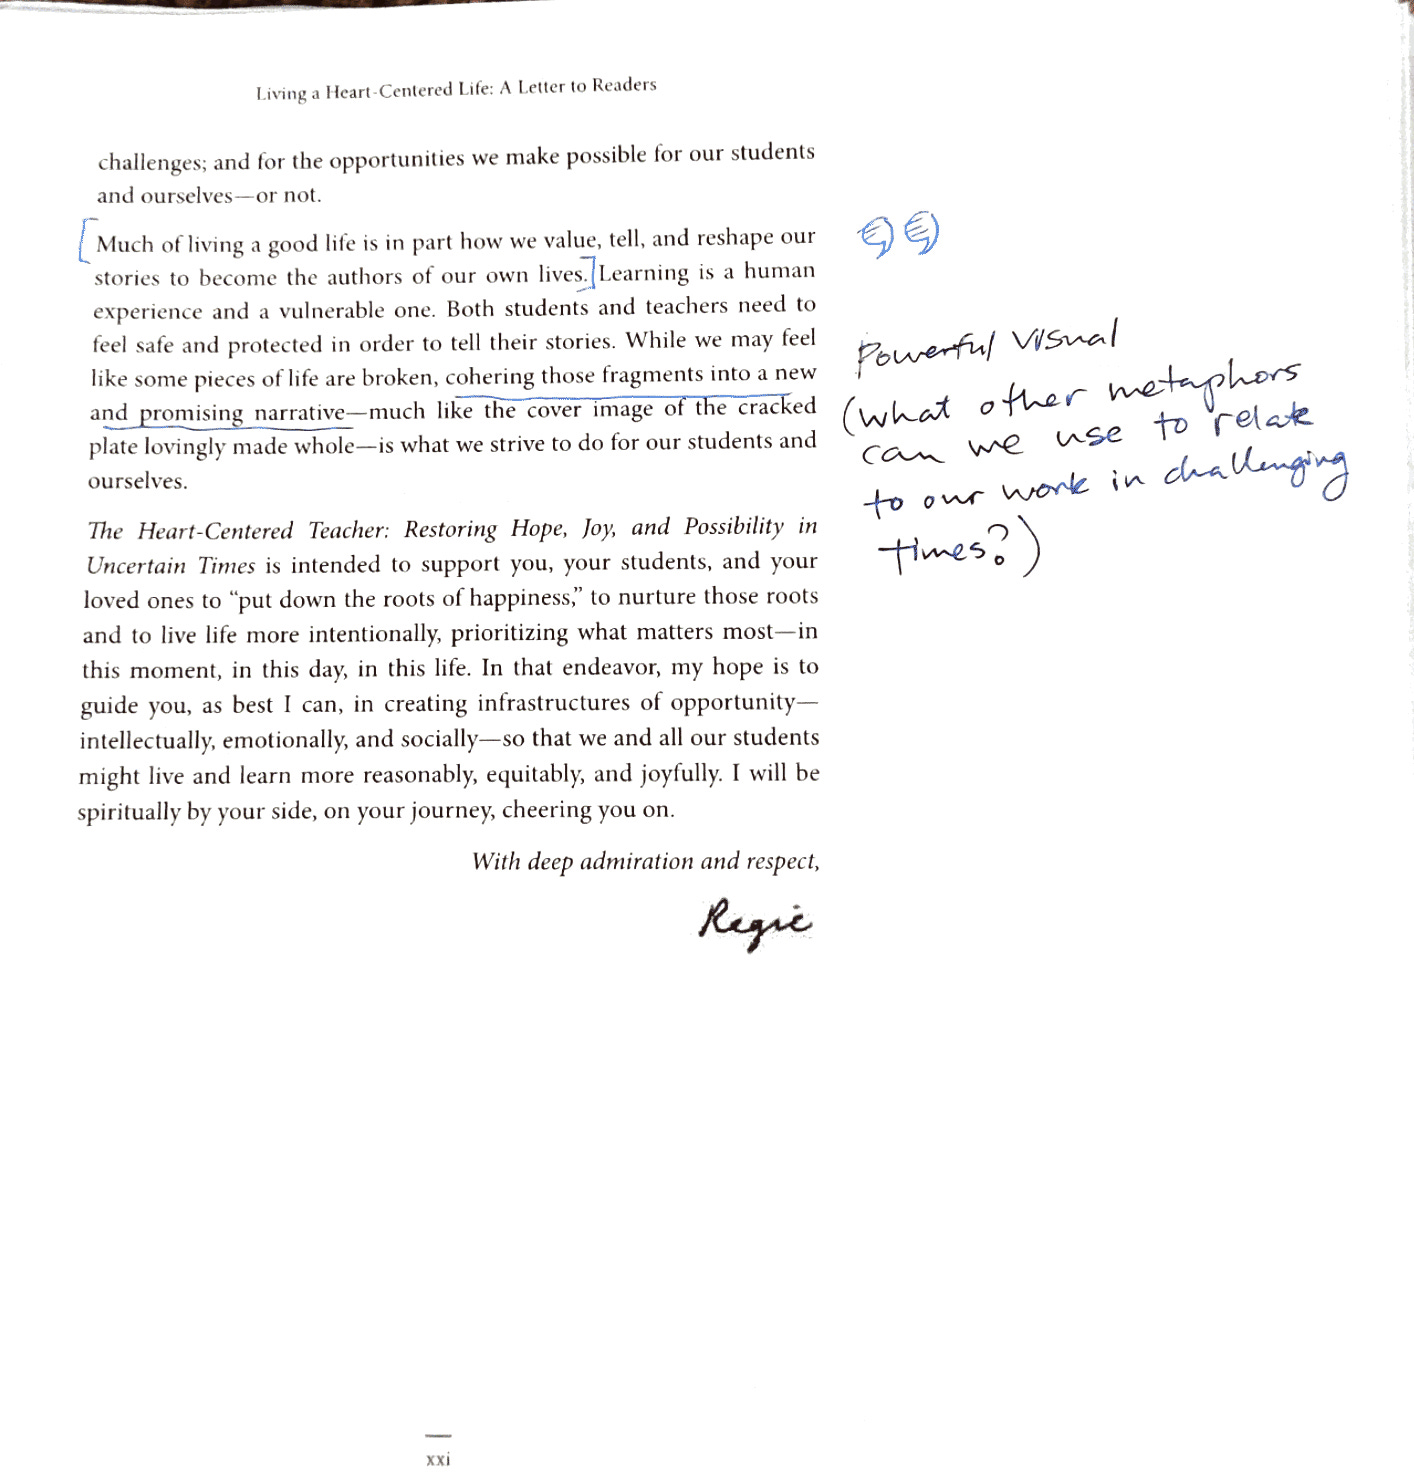 Living a Heart-Centered Life: A Letter to Readers
challenges; and for the opportunities we make possible for our students
and ourselves—or not.
Much of living a good life is in part how we value, tell, and reshape our
stories to become the authors of our own lives. Learning is a human
experience and a vulnerable one. Both students and teachers need to
feel safe and protected in order to tell their stories. While we may feel
like some pieces of life are broken, cohering those fragments into a new
and promising narrative—much like the cover image of the cracked
plate lovingly made whole—is what we strive to do for our students and
ourselves.
The Heart-Centered Teacher: Restoring Hope, Joy, and Possibility in
Uncertain Times is intended to support you, your students, and your
loved ones to “put down the roots of happiness,” to nurture those roots
and to live life more intentionally, prioritizing what matters most—in
this moment, in this day, in this life. In that endeavor, my hope is to
guide you, as best I can, in creating infrastructures of opportunity—
intellectually, emotionally, and socially—so that we and all our students
might live and learn more reasonably, equitably, and joyfully. I will be
spiritually by your side, on your journey, cheering you on.
With deep admiration and respect,
Regie
Powerful visual
(what other metaphors
can we use to relate
to our work in challenging
times?)
xxi